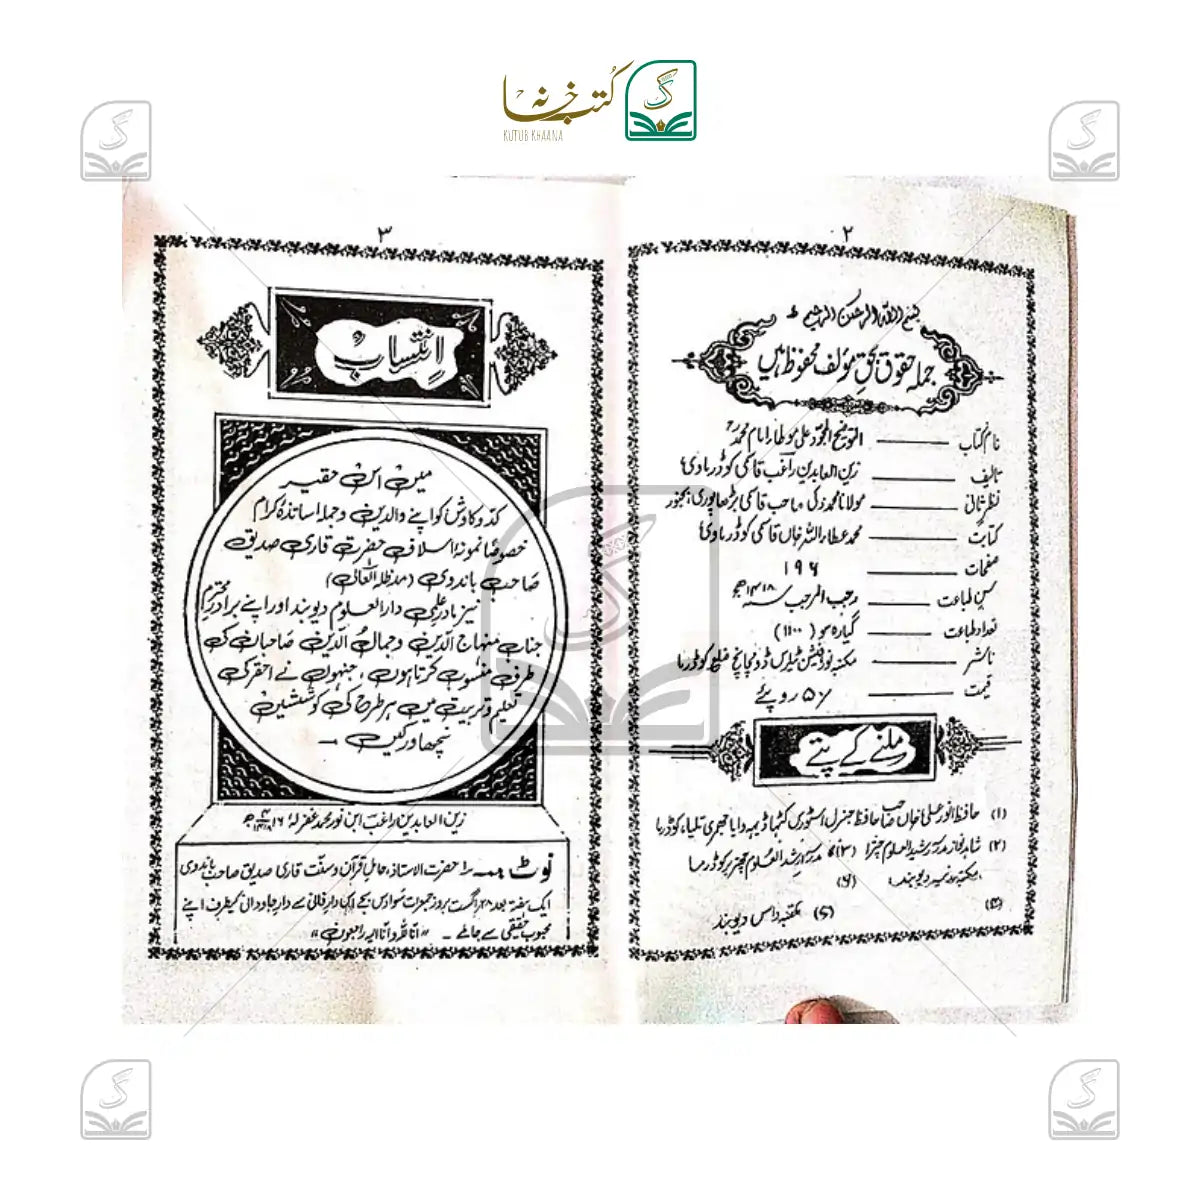 کتب خانہ
KUTUB KHAANA
۲
بسم اللہ الرحمن الرحیم
جملہ حقوق بحق مؤلف محفوظ ہیں
نام کتاب ——— التوضیح المجود علی مؤطا امام محمدؒ
تالیف ——— زین العابدین راغب قاسمی کوڈرماوی
نظر ثانی ——— مولانا محمد زکی صاحب قاسمی بڑھاپوری، بجنور
کتابت ——— محمد عطاء اللہ خاں قاسمی کوڈرماوی
صفحات ——— ۱۹۶
سن طباعت ——— رجب المرجب سنہ ۱۴۱۸ھ
تعداد طباعت ——— گیارہ سو (۱۱۰۰)
ناشر ——— مکتبہ نور ضلع کوڈرما
قیمت ——— ۵۰/ روپئے
ملنے کے پتے
(۱) حافظ انور علی خاں صاحب حافظ جنرل اسٹور جھمری تلیا، کوڈرما
(۲) مدرسہ رشید العلوم چترا (۳) مدرسہ رشید العلوم کوڈرما
(۴) مکتبہ دیوبند (۶)
(۵) مکتبہ دیوبند
۳
انتساب
میں اس حقیر
کدوکاوش کو اپنے والدین و جملہ اساتذۂ کرام
خصوصاً نمونۂ اسلاف حضرت قاری صدیق
صاحب باندوی (مدظلہ العالی)
نیز مادر علمی دارالعلوم دیوبند اور اپنے برادر محترم
جناب منہاج الدین و جمال الدین صاحبان کی
طرف منسوب کرتا ہوں، جنہوں نے احقر کی
تعلیم و تربیت میں ہر طرح کی کوششیں
نچھاور کیں۔
زین العابدین راغب ابن نور محمد غفرلہٗ ۱۶/۴/۱۴۱۸ھ
نوٹ ؎ حضرت الاستاذ، حامل قرآن و سنت قاری صدیق صاحب باندوی
ایک ہفتہ بعد ۲۸ اگست بروز جمعرات دار فانی سے دار جاودانی کیطرف اپنے
محبوب حقیقی سے جا ملے۔ "انا للہ وانا الیہ راجعون"